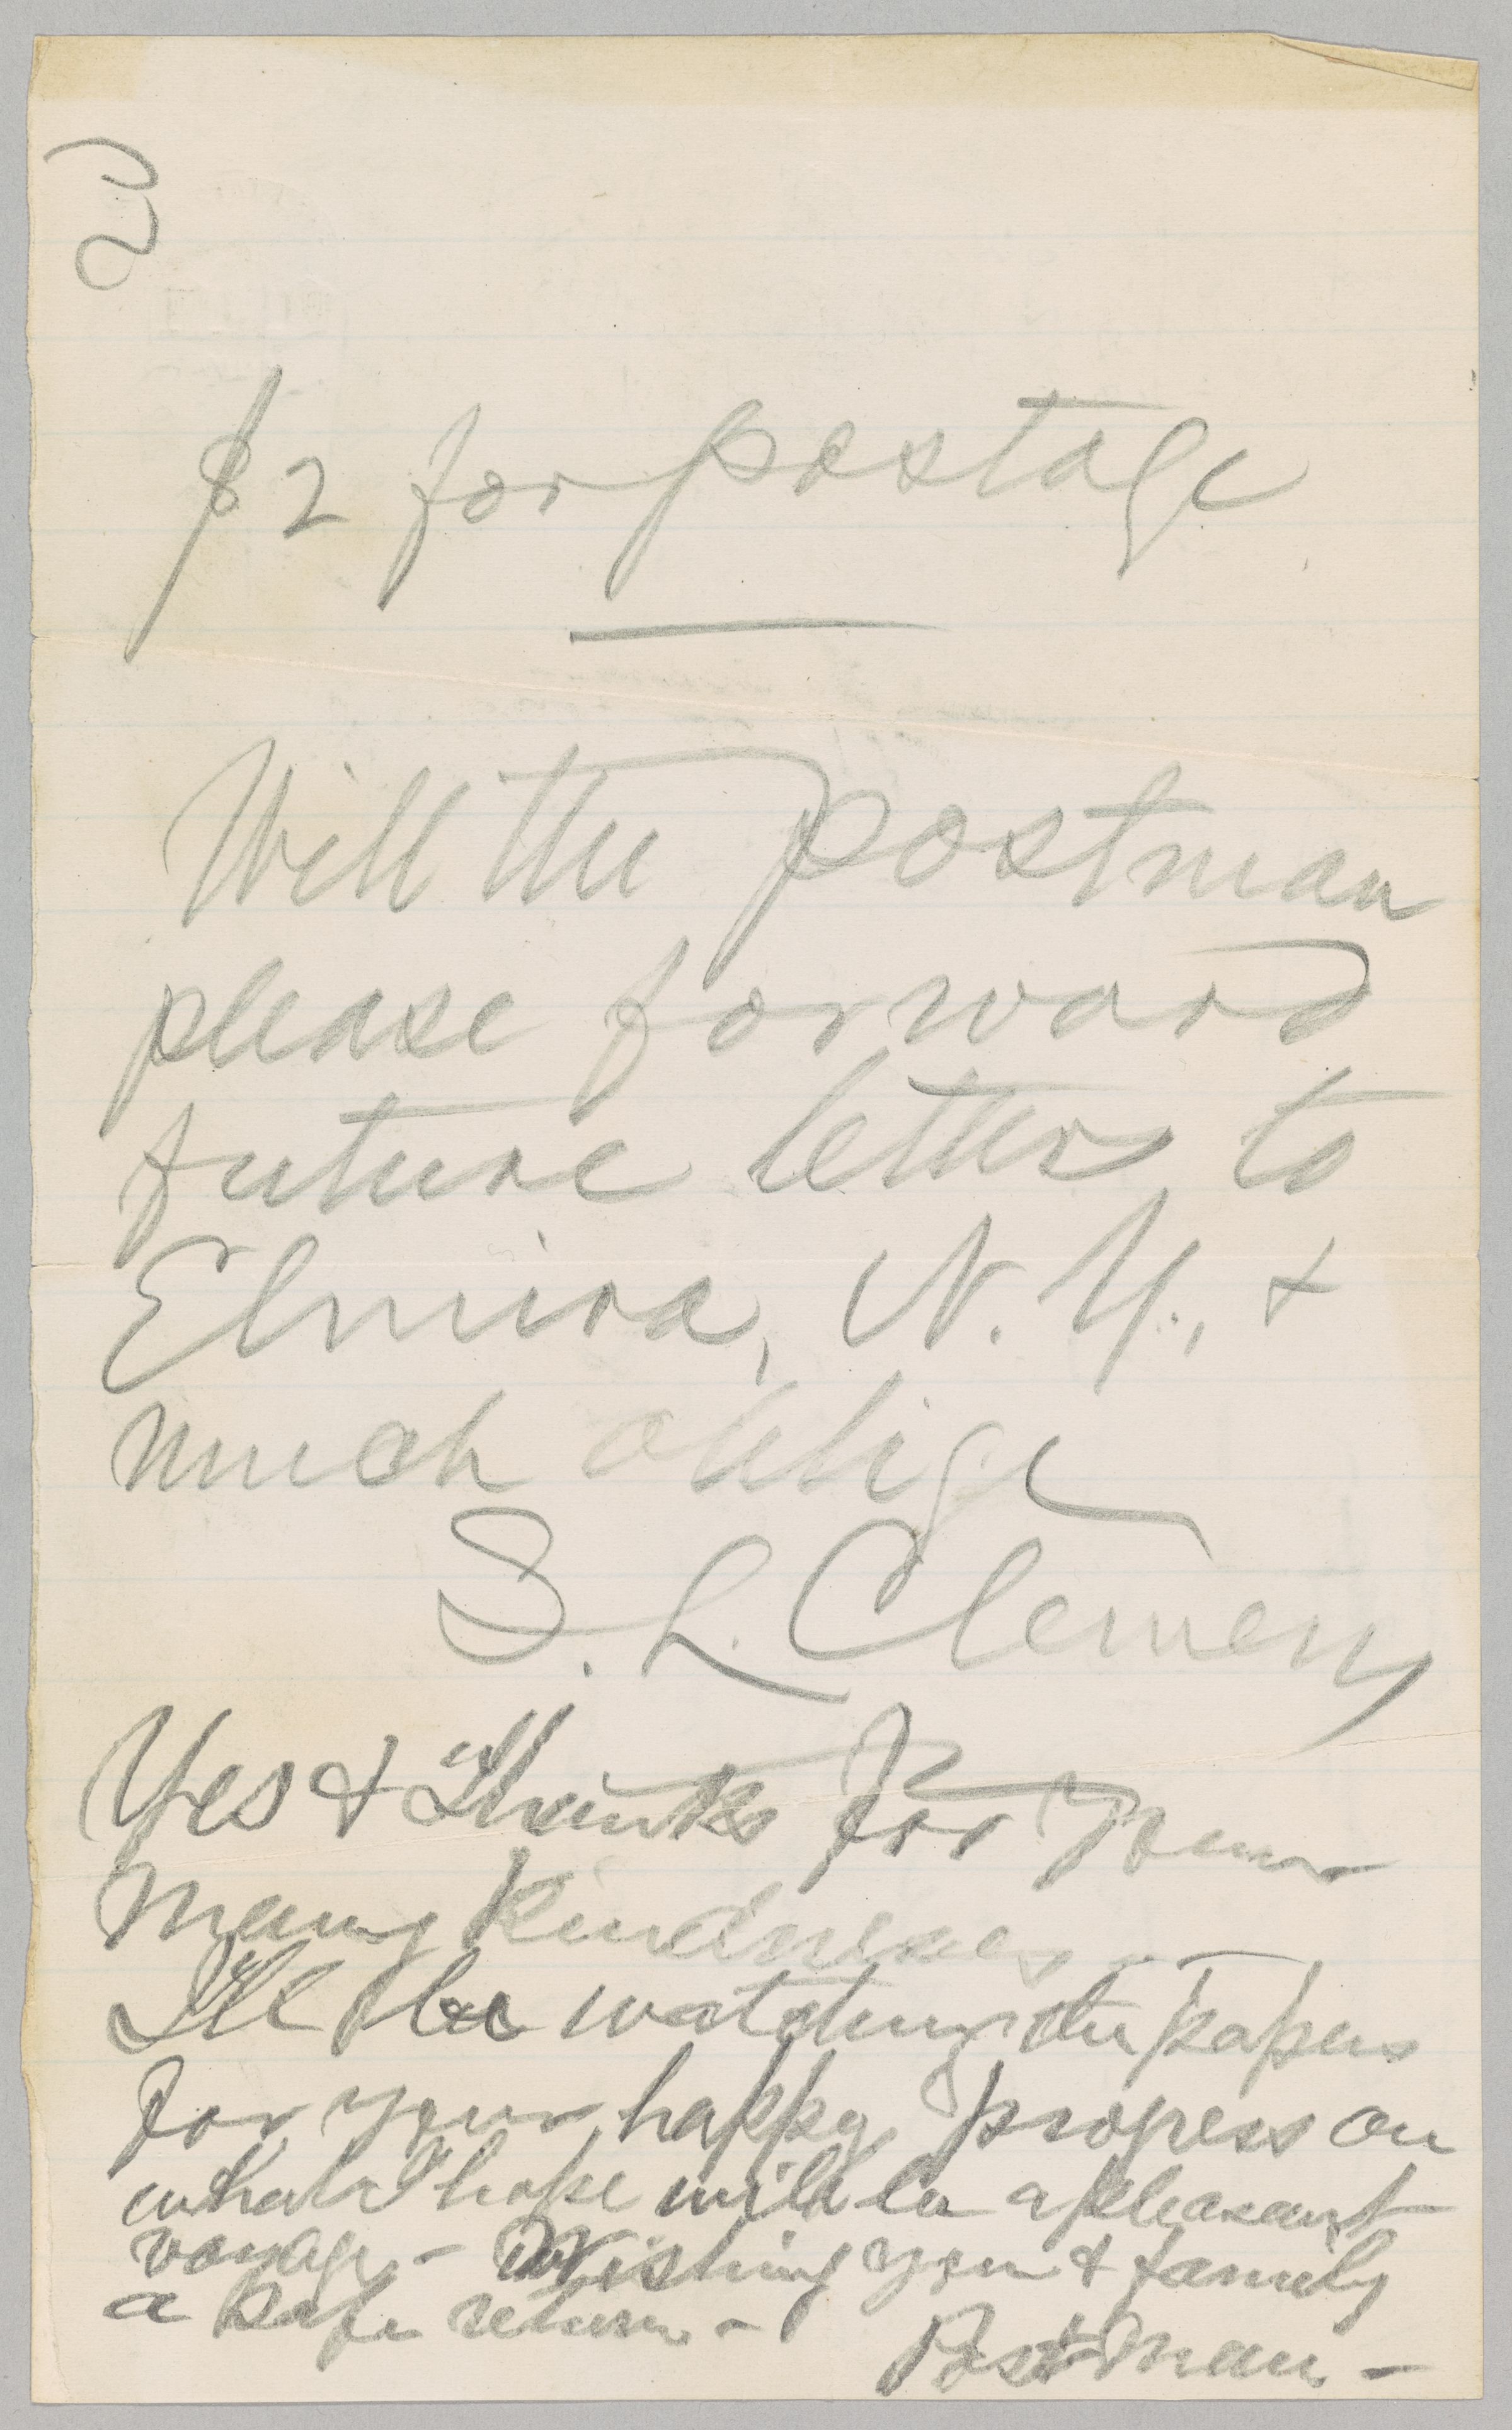 2)
$2 for postage
Will the postman
please forward
future letters to
Elmira, N. Y., &
much oblige
S. L. Clemens
Yes & Thanks for your
many Kindnesses
I'll be watching the papers
for your happy progress on
what I hope will be a pleasant
voyage - Wishing you & family
a safe return -
Postman -